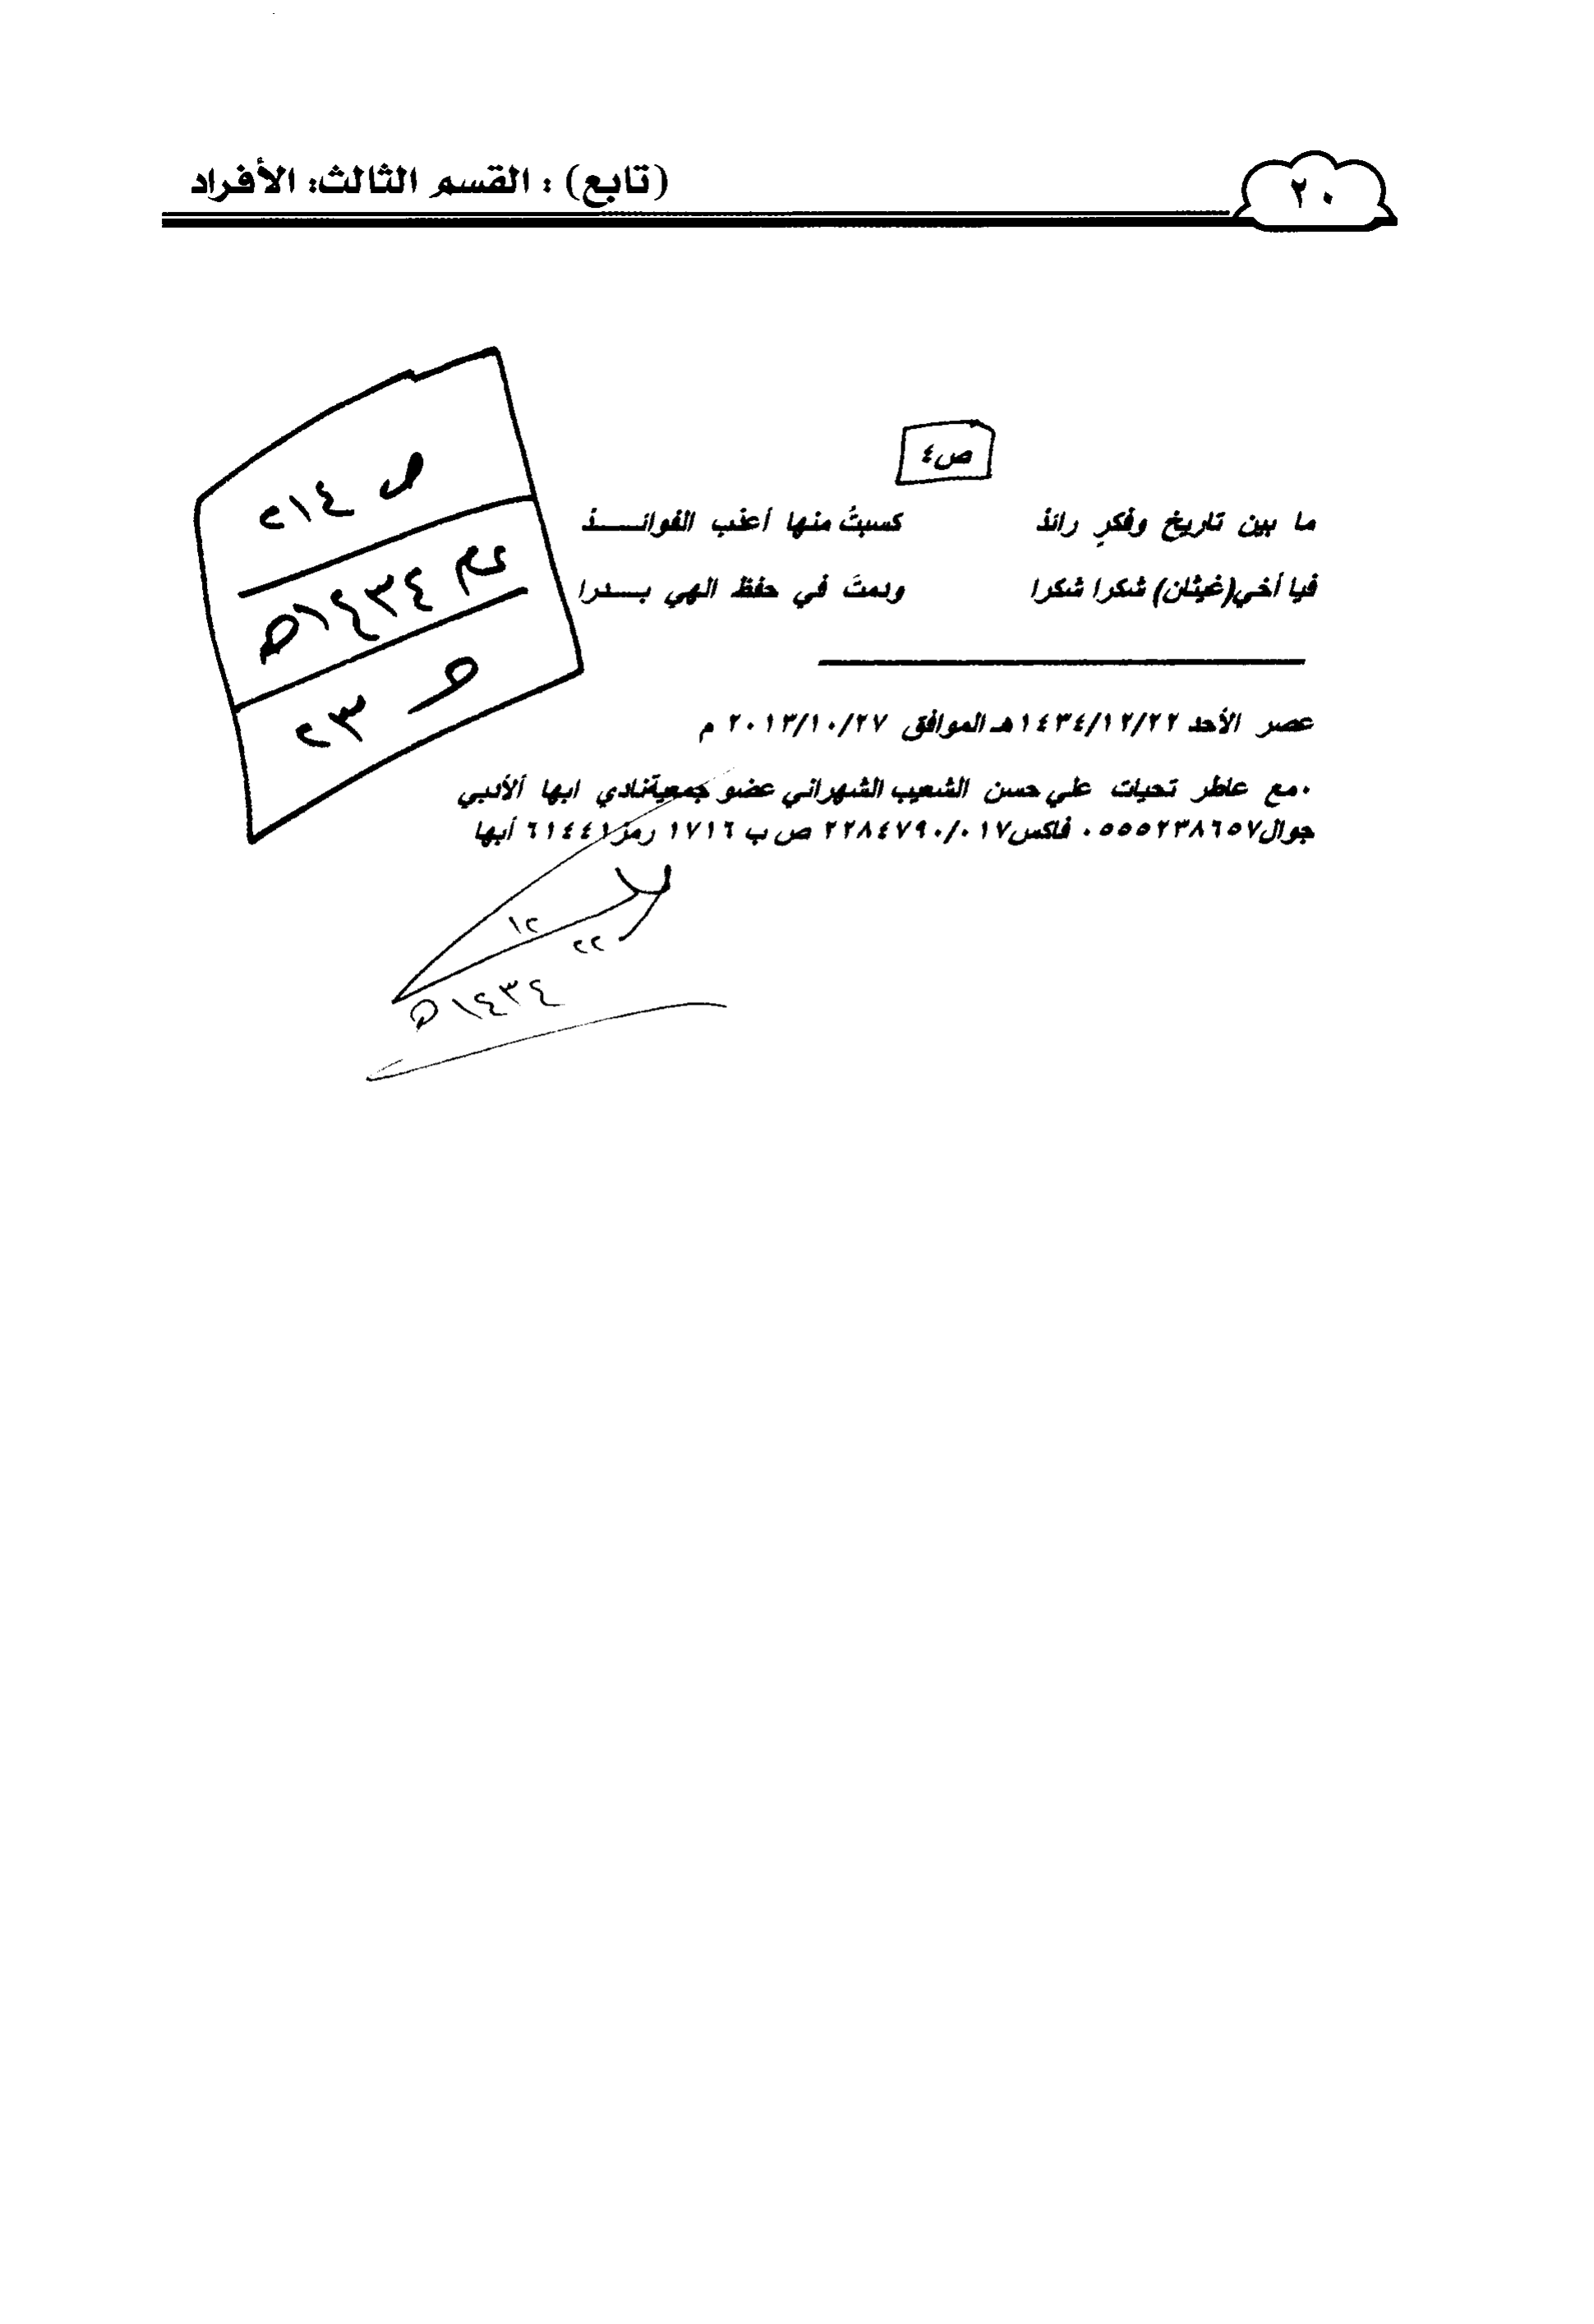 (تابع) : القسم الثالث: الأفراد
٢٠
ص٤
ما بين تاريخ وفكرٍ رائدْ كسبتُ منها أعذب الفوائــــــدْ
فيا أخي(غيثان) شكرا شكرا ودمتَ في حفظ الهي بـــدرا
عصر الأحد ١٤٣٤/١٢/٢٢هـ الموافق ٢٠١٣/١٠/٢٧ م
٠مع عاطر تحيات علي حسن الشعيب الشهراني عضو جمعيةنادي ابها ألأدبي
جوال٠٥٥٥٢٣٨٦٥٧ فاكس٢٢٨٤٧٩٠/٠١٧ ص ب ١٧١٦ رمز٦١٤٤١ أبها
ص ٢١٤
عام ١٤٣٤هـ
حـ ٢٣
١٢
٢٢
١٤٣٤هـ